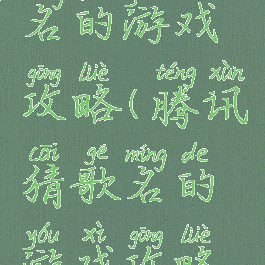 名的游戏
gōng lüè téng xùn
攻略(腾讯
cāi gē míng de
猜歌名的
yóu xì gōng lüè
游戏攻略